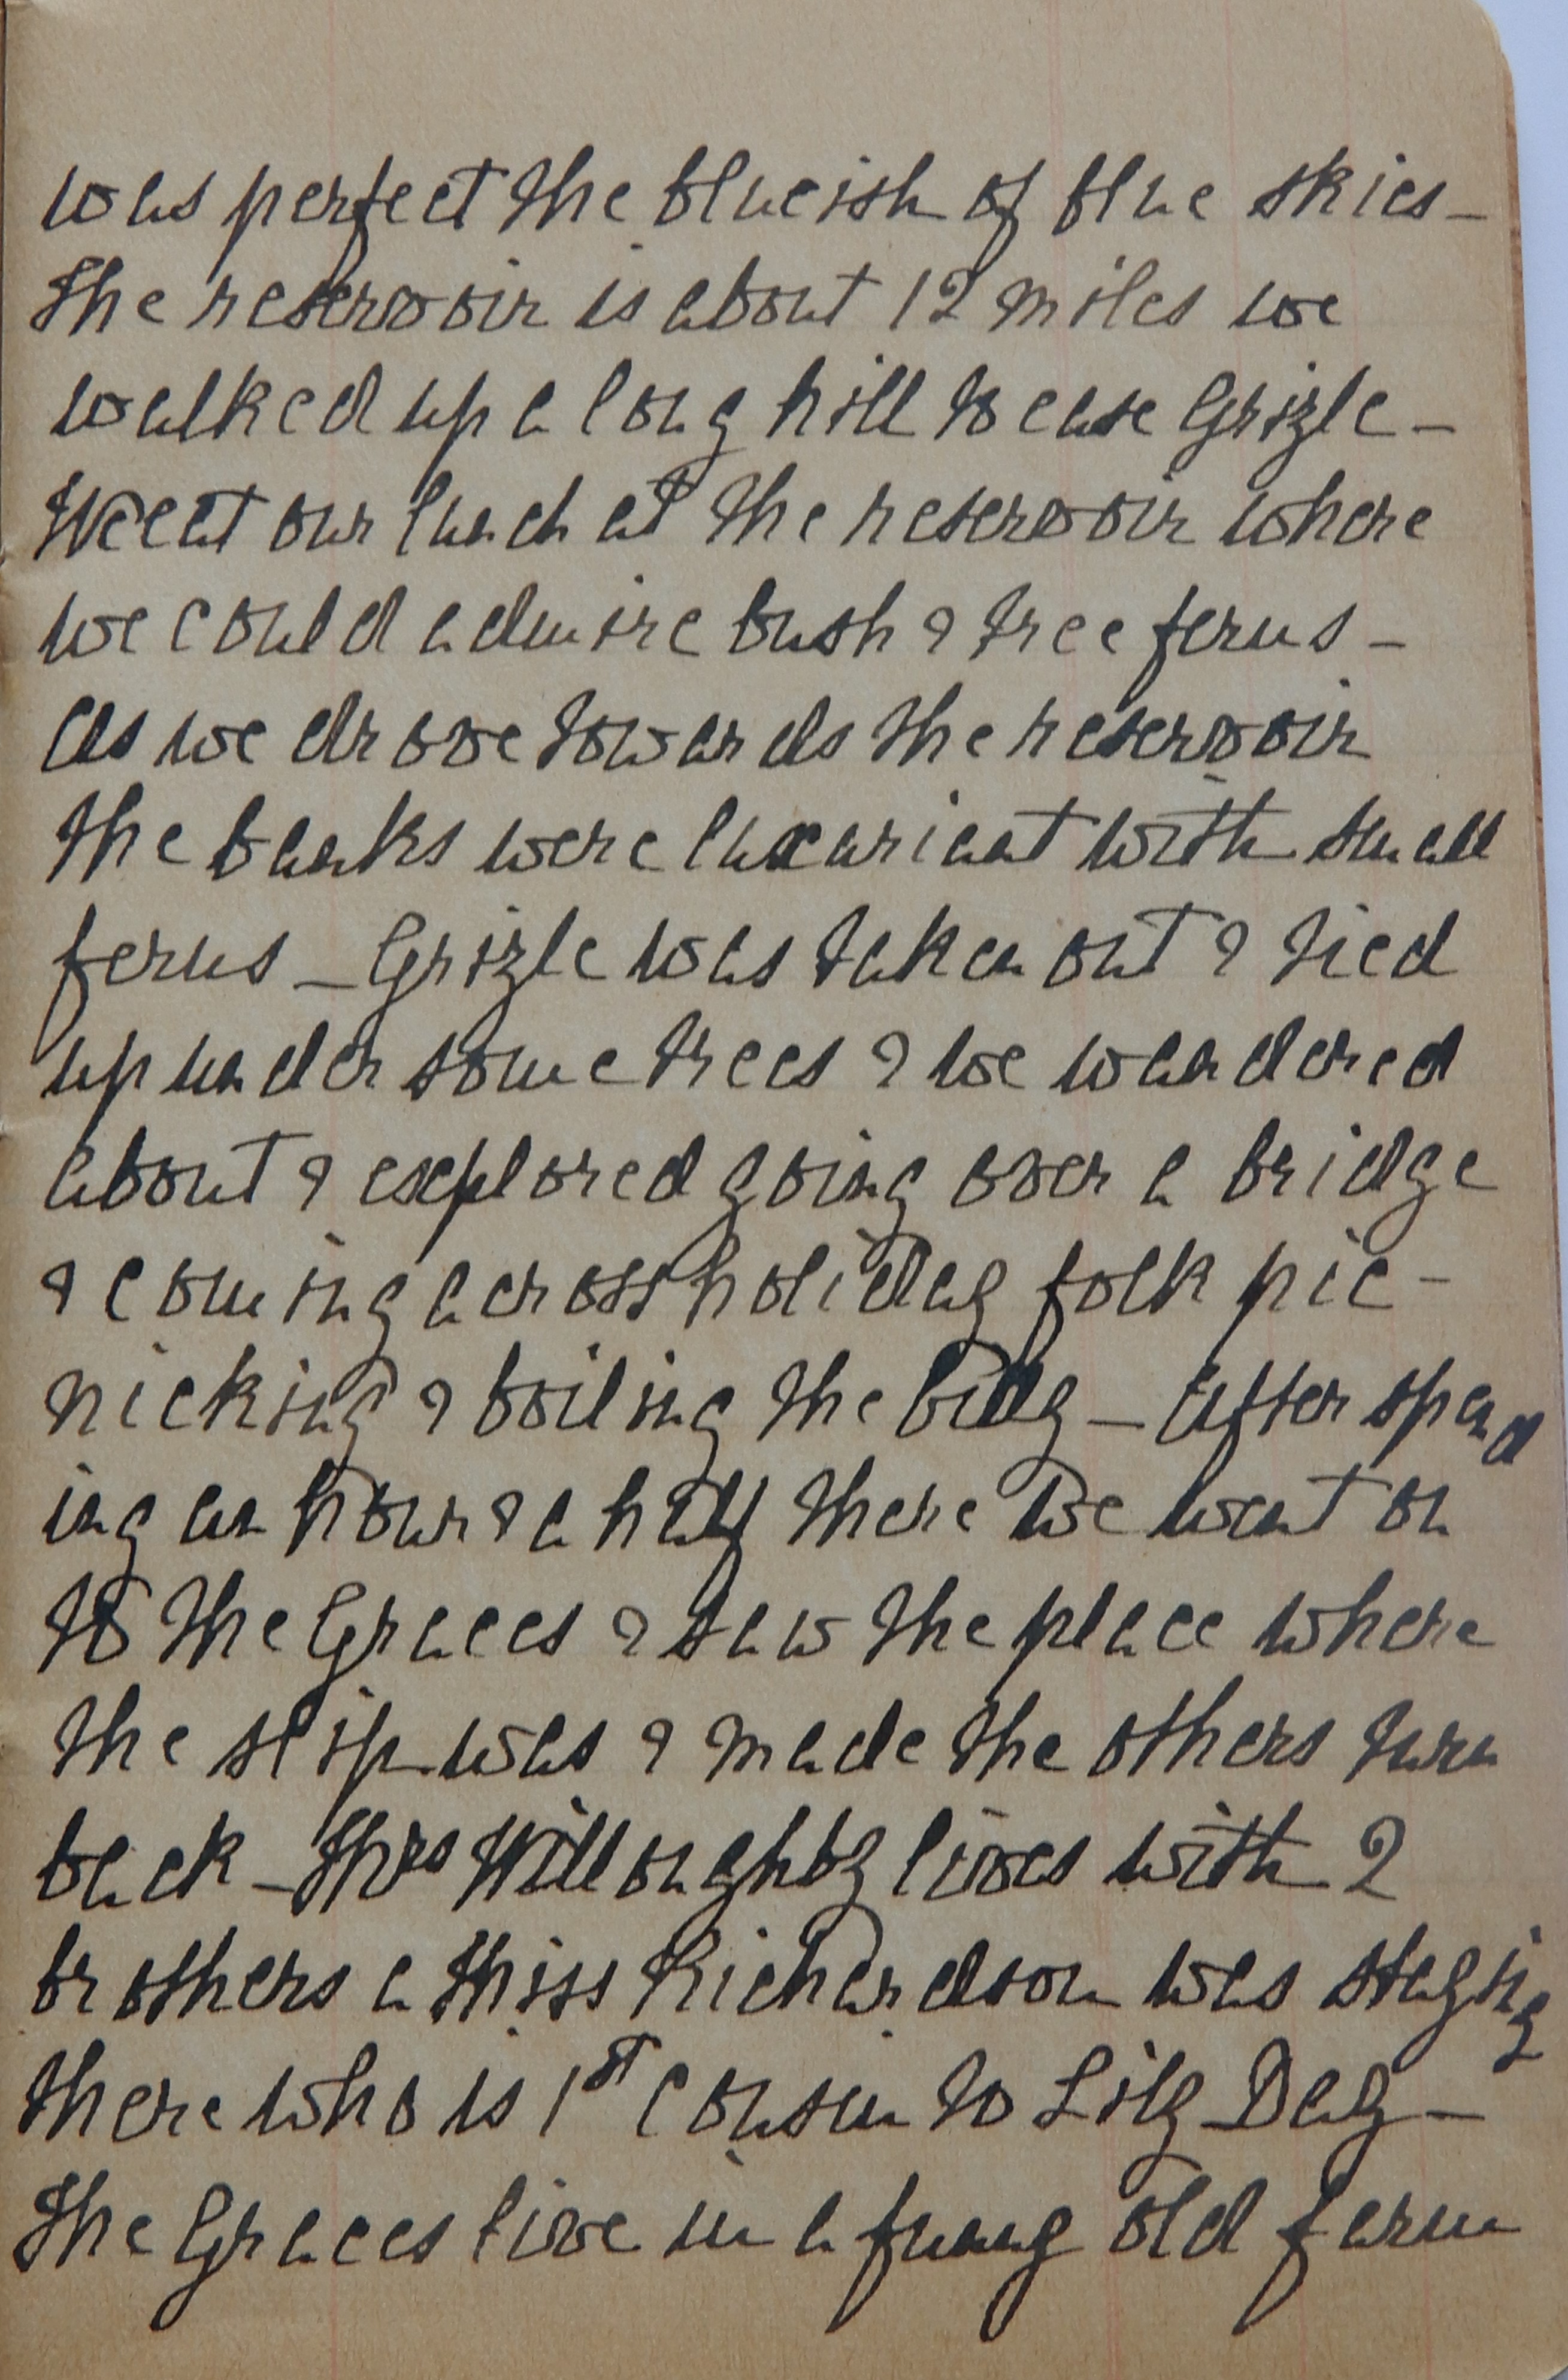 was perfect the blueish of blue skies -
The reservoir is about 12 miles we
walked up a long hill to ease Grizle -
We eat our lunch at the reservoir where
we could admire bush & tree ferns -
As we drove towards the reservoir
the banks were luxuriant with small
ferns - Grizle was taken out & tied
up under some trees & we wandered
about & explored going over a bridge
& coming across holiday folk pic -
nicking & boiling the billy - After spend
ing an hour & a half there we went on
to the Graces & saw the place where
the slip was & made the others turn
back - Mrs Willoughby lives with 2
brothers a Miss Richardson was staying
there who is 1st Cousin to Lily Day -
The Graces live in a funny old farm